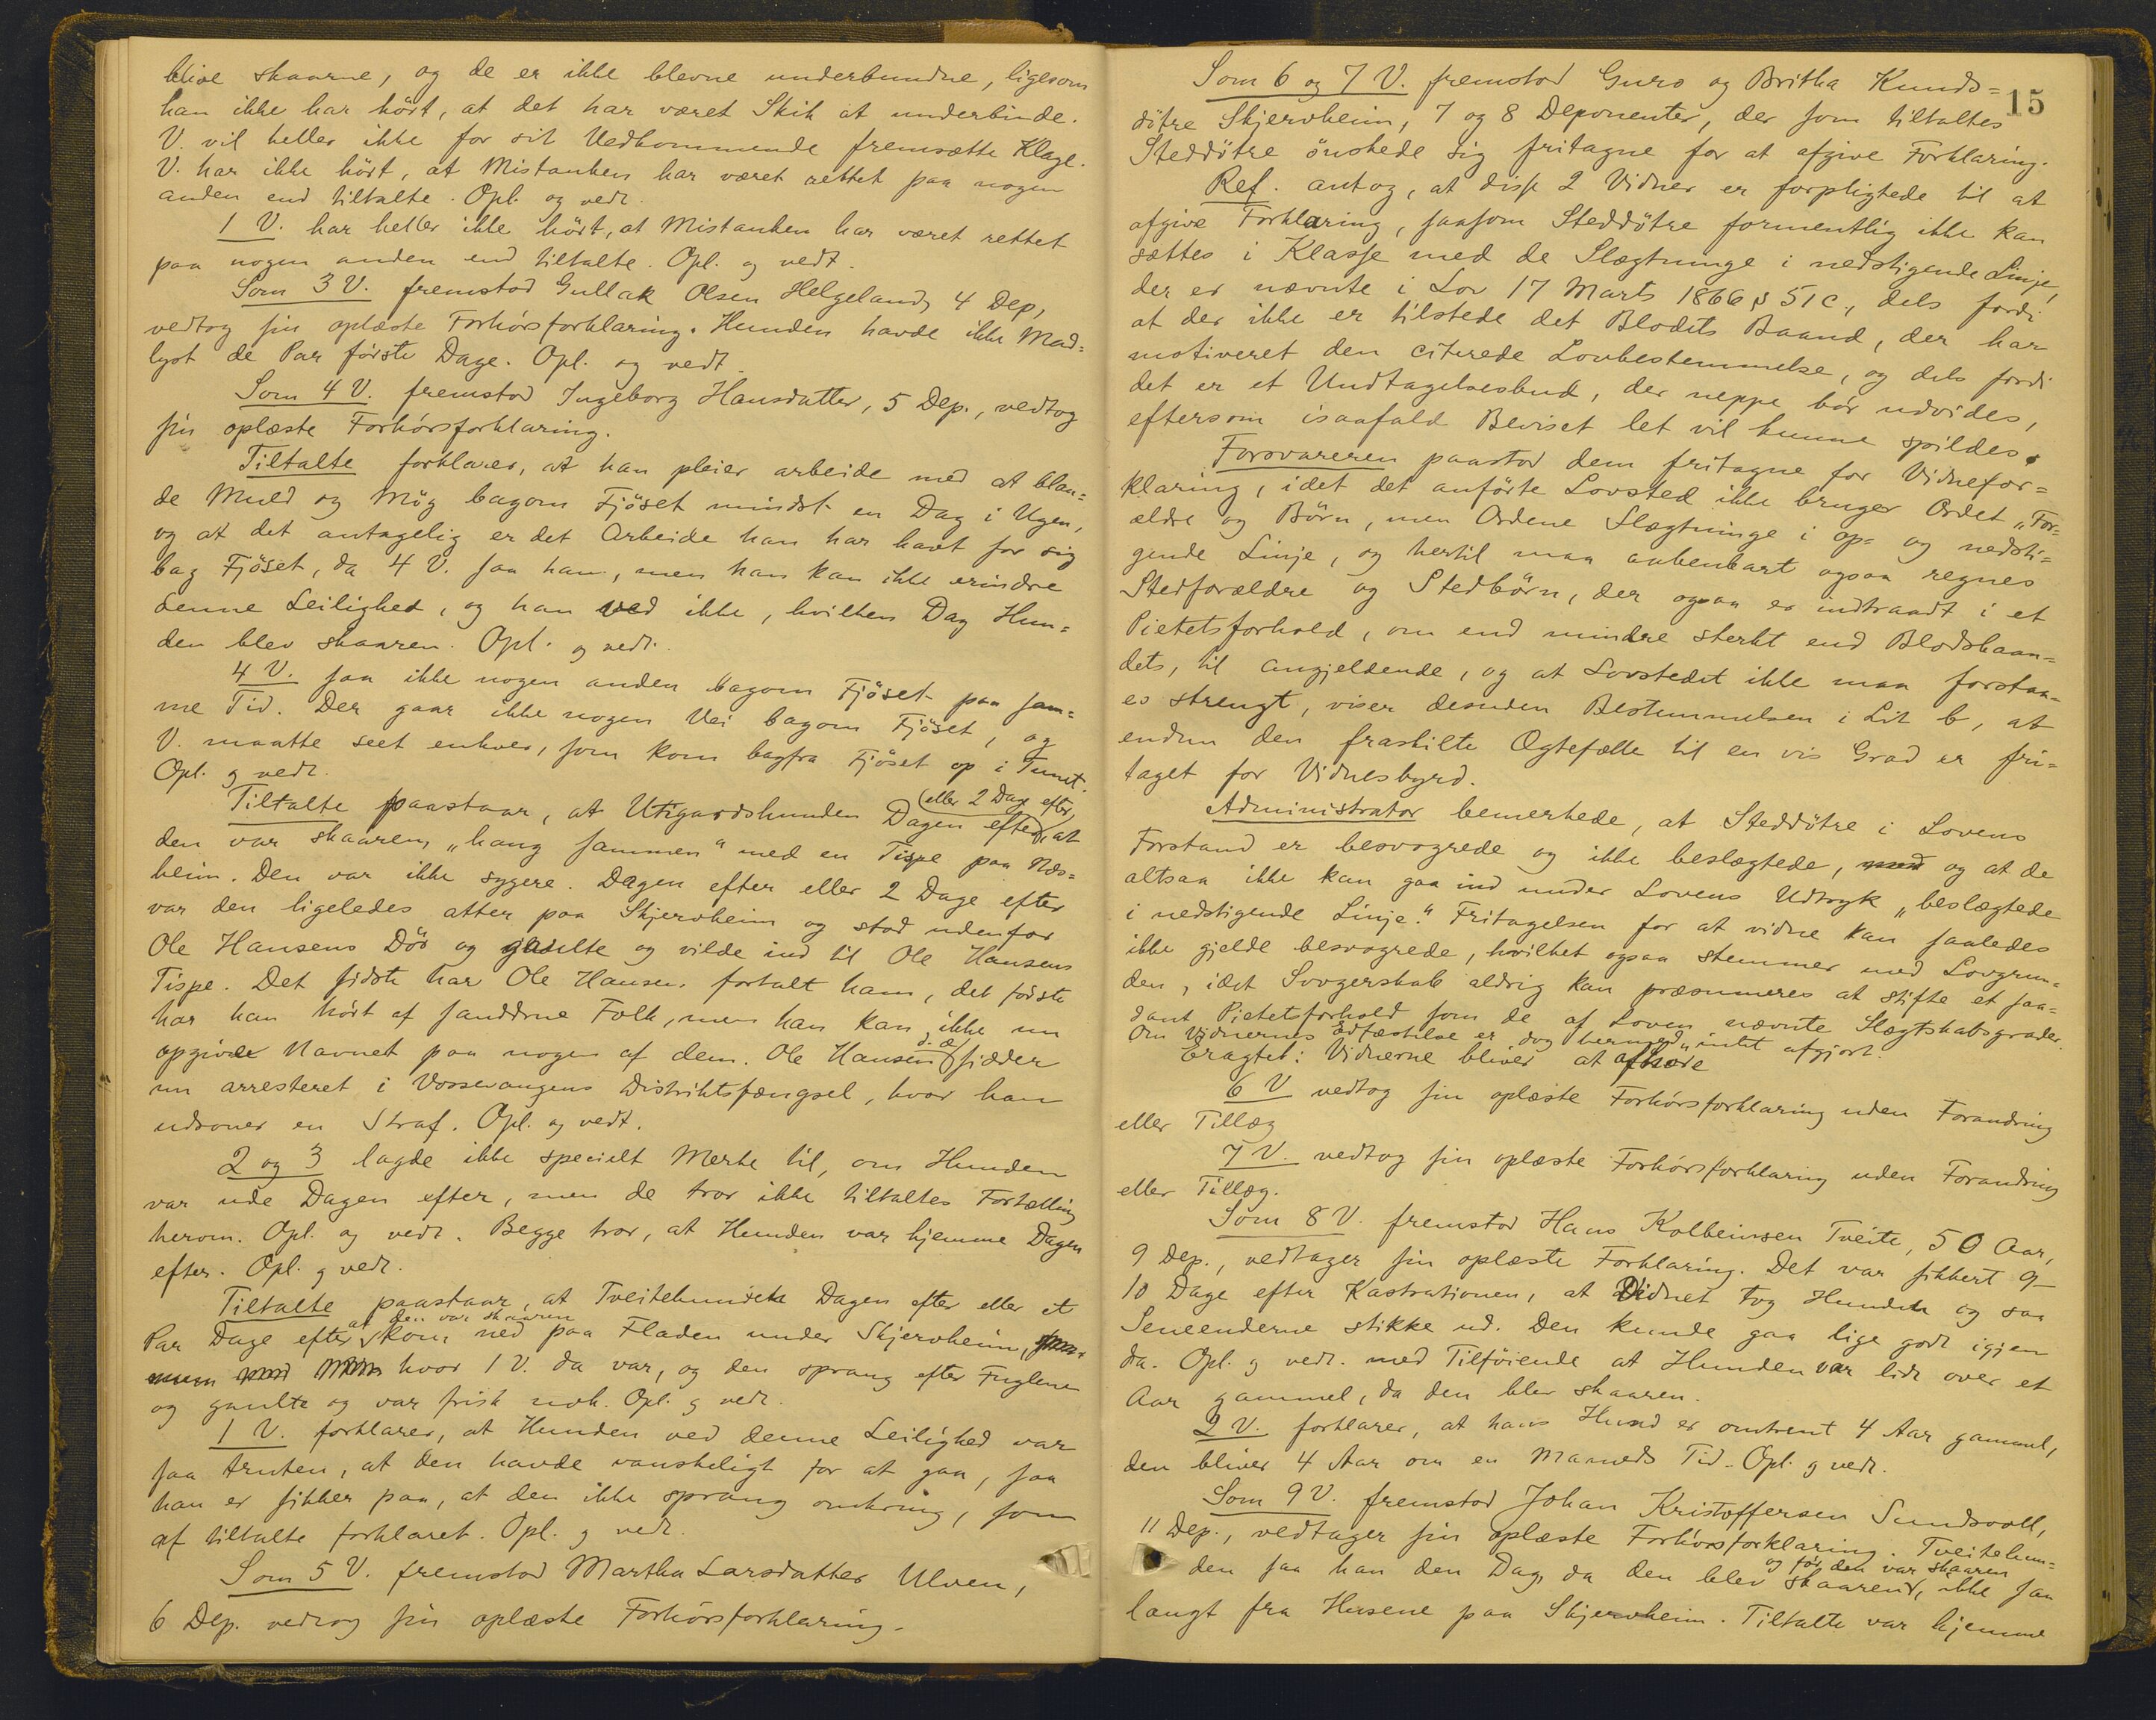 blive skaarne, og de er ikke blevne underbundne, ligesom
han ikke har hört, at det har været Skik at underbinde.
V. vil heller ikke for sit Vedkommende fremsætte Klage.
V. har ikke hört, at Mistanken har været rettet paa nogen
anden end tiltalte. Opl. og vedt.
1 V. har heller ikke hört, at Mistanken har været rettet
paa nogen anden end tiltalte. Opl. og vedt.
Som 3 V. fremstod Gullak Olsen Helgeland, 4 Dep,
vedtog sin oplæste Forhörsforklaring. Hunden havde ikke Mad=
lyst de Par förste Dage. Opl. og vedt.
Som 4 V. fremstod Ingeborg Hansdatter, 5 Dep., vedtog
sin oplæste Forhörsforklaring.
Tiltalte forklarer, at han pleier arbeide med at blan=
de Muld og Mög bagom Fjöset mindst en Dag i Ugen,
og at det antagelig er det Arbeide han har havt for sig
bag Fjöset, da 4 V. saa ham, men han kan ikke erindre
denne Leilighed, og han ved ikke, hvilken Dag Hun=
den blev skaaren. Opl. og vedt.
4 V. saa ikke nogen anden bagom Fjöset paa sam=
me Tid. Der gaar ikke nogen Vei bagom Fjöset, og
V. maatte seet enhver, som kom bagfra Fjöset op i Tunet.
Opl. og vedt.
(eller 2 Dage efter)
Tiltalte paastaar, at Utigardshunden Dagen efter, at
den var skaaren, "hang sammen" med en Tispe paa Næs=
heim. Den var ikke sygere. Dagen efter eller 2 Dage efter
var den ligeledes atter paa Skjervheim og stod udenfor
Ole Hansens Dör og gaulte og vilde ind til Ole Hansens
Tispe. Det sidste har Ole Hansen fortalt ham, det förste
har han hört af sanddrue Folk, men han kan ikke nu
opgive Navnet paa nogen af dem. Ole Hansen sidder
nu arresteret i Vossevangens Distriktsfængsel, hvor han
udsoner en Straf. Opl. og vedt.
2 og 3 lagde ikke specielt Merke til, om Hunden
var ude Dagen efter, men de tror ikke tiltaltes Fortælling
herom. Opl. og vedt. Begge tror, at Hunden var hjemme Dagen
efter. Opl. og vedt.
Tiltalte paastaar, at Tveitehunden Dagen efter eller et
at den var skaaren
Par Dage efter kom ned paa Fladen under Skjervheim,
hvor 1 V. da var, og den sprang efter Fuglene
og gaulte og var frisk nok. Opl. og vedt.
1 V. forklarer, at Hunden ved denne Leilighed var
saa truten, at den havde vanskeligt for at gaa, saa
han er sikker paa, at den ikke sprang omkring, som
af tiltalte forklaret. Opl. og vedt.
Som 5 V. fremstod Martha Larsdatter Ulven,
6 Dep. vedtog sin oplæste Forhörsforklaring.
15
Som 6 og 7 V. fremstod Guro og Britha Knuds=
dötre Skjervheim, 7 og 8 Deponenter, der som tiltaltes
Steddötre önskede sig fritagne for at afgive Forklaring.
Ref. antog, at disse 2 Vidner er forpligtede til at
afgive Forklaring, saasom Steddötre formentlig ikke kan
sættes i Klasse med de Slægtninge i nedstigende Linje,
der er nævnte i Lov 17 Marts 1866 § 51 c., dels fordi
at der ikke er tilstede det Blodets Baand, der har
motiveret den citerede Lovbestemmelse, og dels fordi
det er et Undtagelsesbud, der neppe bör udvides,
eftersom isaafald Beviset let vil kunne spildes.
Forsvareren paastod dem fritagne for Vidnefor=
klaring, idet det anförte Lovsted ikke bruger Ordet "For=
ældre og Börn, men Ordene Slægtninge i op= og nedsti=
gende Linje, og hertil maa aabenbart ogsaa regnes
Stedforældre og Stedbörn, der ogsaa er indtraadt i et
Pietetsforhold, om end mindre sterkt end Blodsbaan=
dets, til angjeldende, og at Lovstedet ikke maa forstaa=
es strengt, viser desuden Bestemmelsen i Lit b, at
endnu den fraskilte Ægtefælle til en vis Grad er fri=
taget for Vidnesbyrd.
Administrator bemerkede, at Steddötre i Lovens
Forstand er besvogrede og ikke beslægtede, og at de
altsaa ikke kan gaa ind under Lovens Udtryk "beslægtede
i nedstigende Linje." Fritagelsen for at vidne kan saaledes
ikke gjelde besvogrede, hvilket ogsaa stemmer med Lovgrun=
den, idet Svogerskab aldrig kan præsumeres at stifte et saa=
dant Pietetsforhold som de af Loven nævnte Slægtskabsgrader.
Om Vidnernes Edfæstelse er dog hermed intet afgjort.
Eragtet: Vidnerne bliver at afhöre
6 V vedtog sin oplæste Forhörsforklaring uden Forandring
eller Tillæg
7 V. vedtog sin oplæste Forhörsforklaring uden Forandring
eller Tillæg.
Som 8 V. fremstod Hans Kolbeinsen Tveite, 50 Aar,
9 Dep., vedtager sin oplæste Forklaring. Det var sikkert 9-
10 Dage efter Kastrationen, at Vidnet tog Hunden og saa
Seneenderne stikke ud. Den kunde gaa lige godt igjen
da. Opl. og vedt. med Tilföiende at Hunden var lidt over et
Aar gammel, da den blev skaaren.
2 V. forklarer, at hans Hund er omtrent 4 Aar gammel,
den bliver 4 Aar om en Maaneds Tid. Opl. og vedt.
Som 9 V. fremstod Johan Kristoffersen Sundsvoll,
11 Dep., vedtager sin oplæste Forhörsforklaring. Tveitehun=
og för den var skaaren
den saa han den Dag, da den blev skaaren, ikke saa
langt fra Husene paa Skjervheim. Tiltalte var hjemme